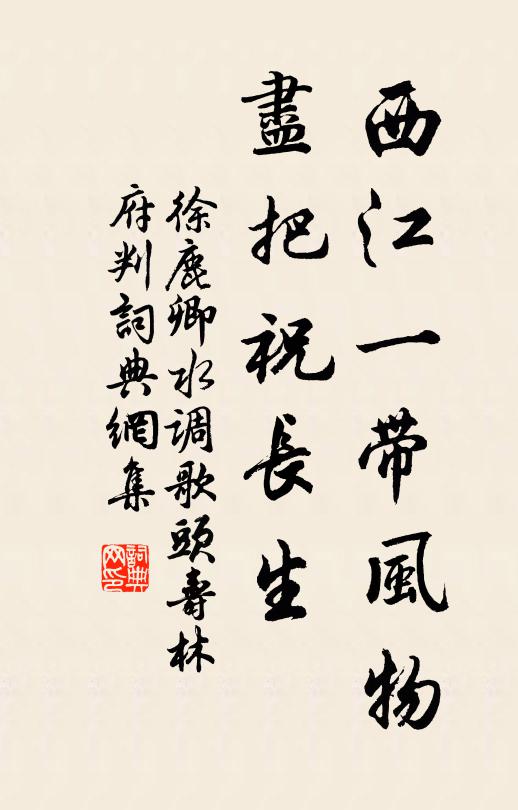 西江一帶風物
盡把祝長生
徐鹿卿水调歌頭壽林
府判詞典網集
詞典網印